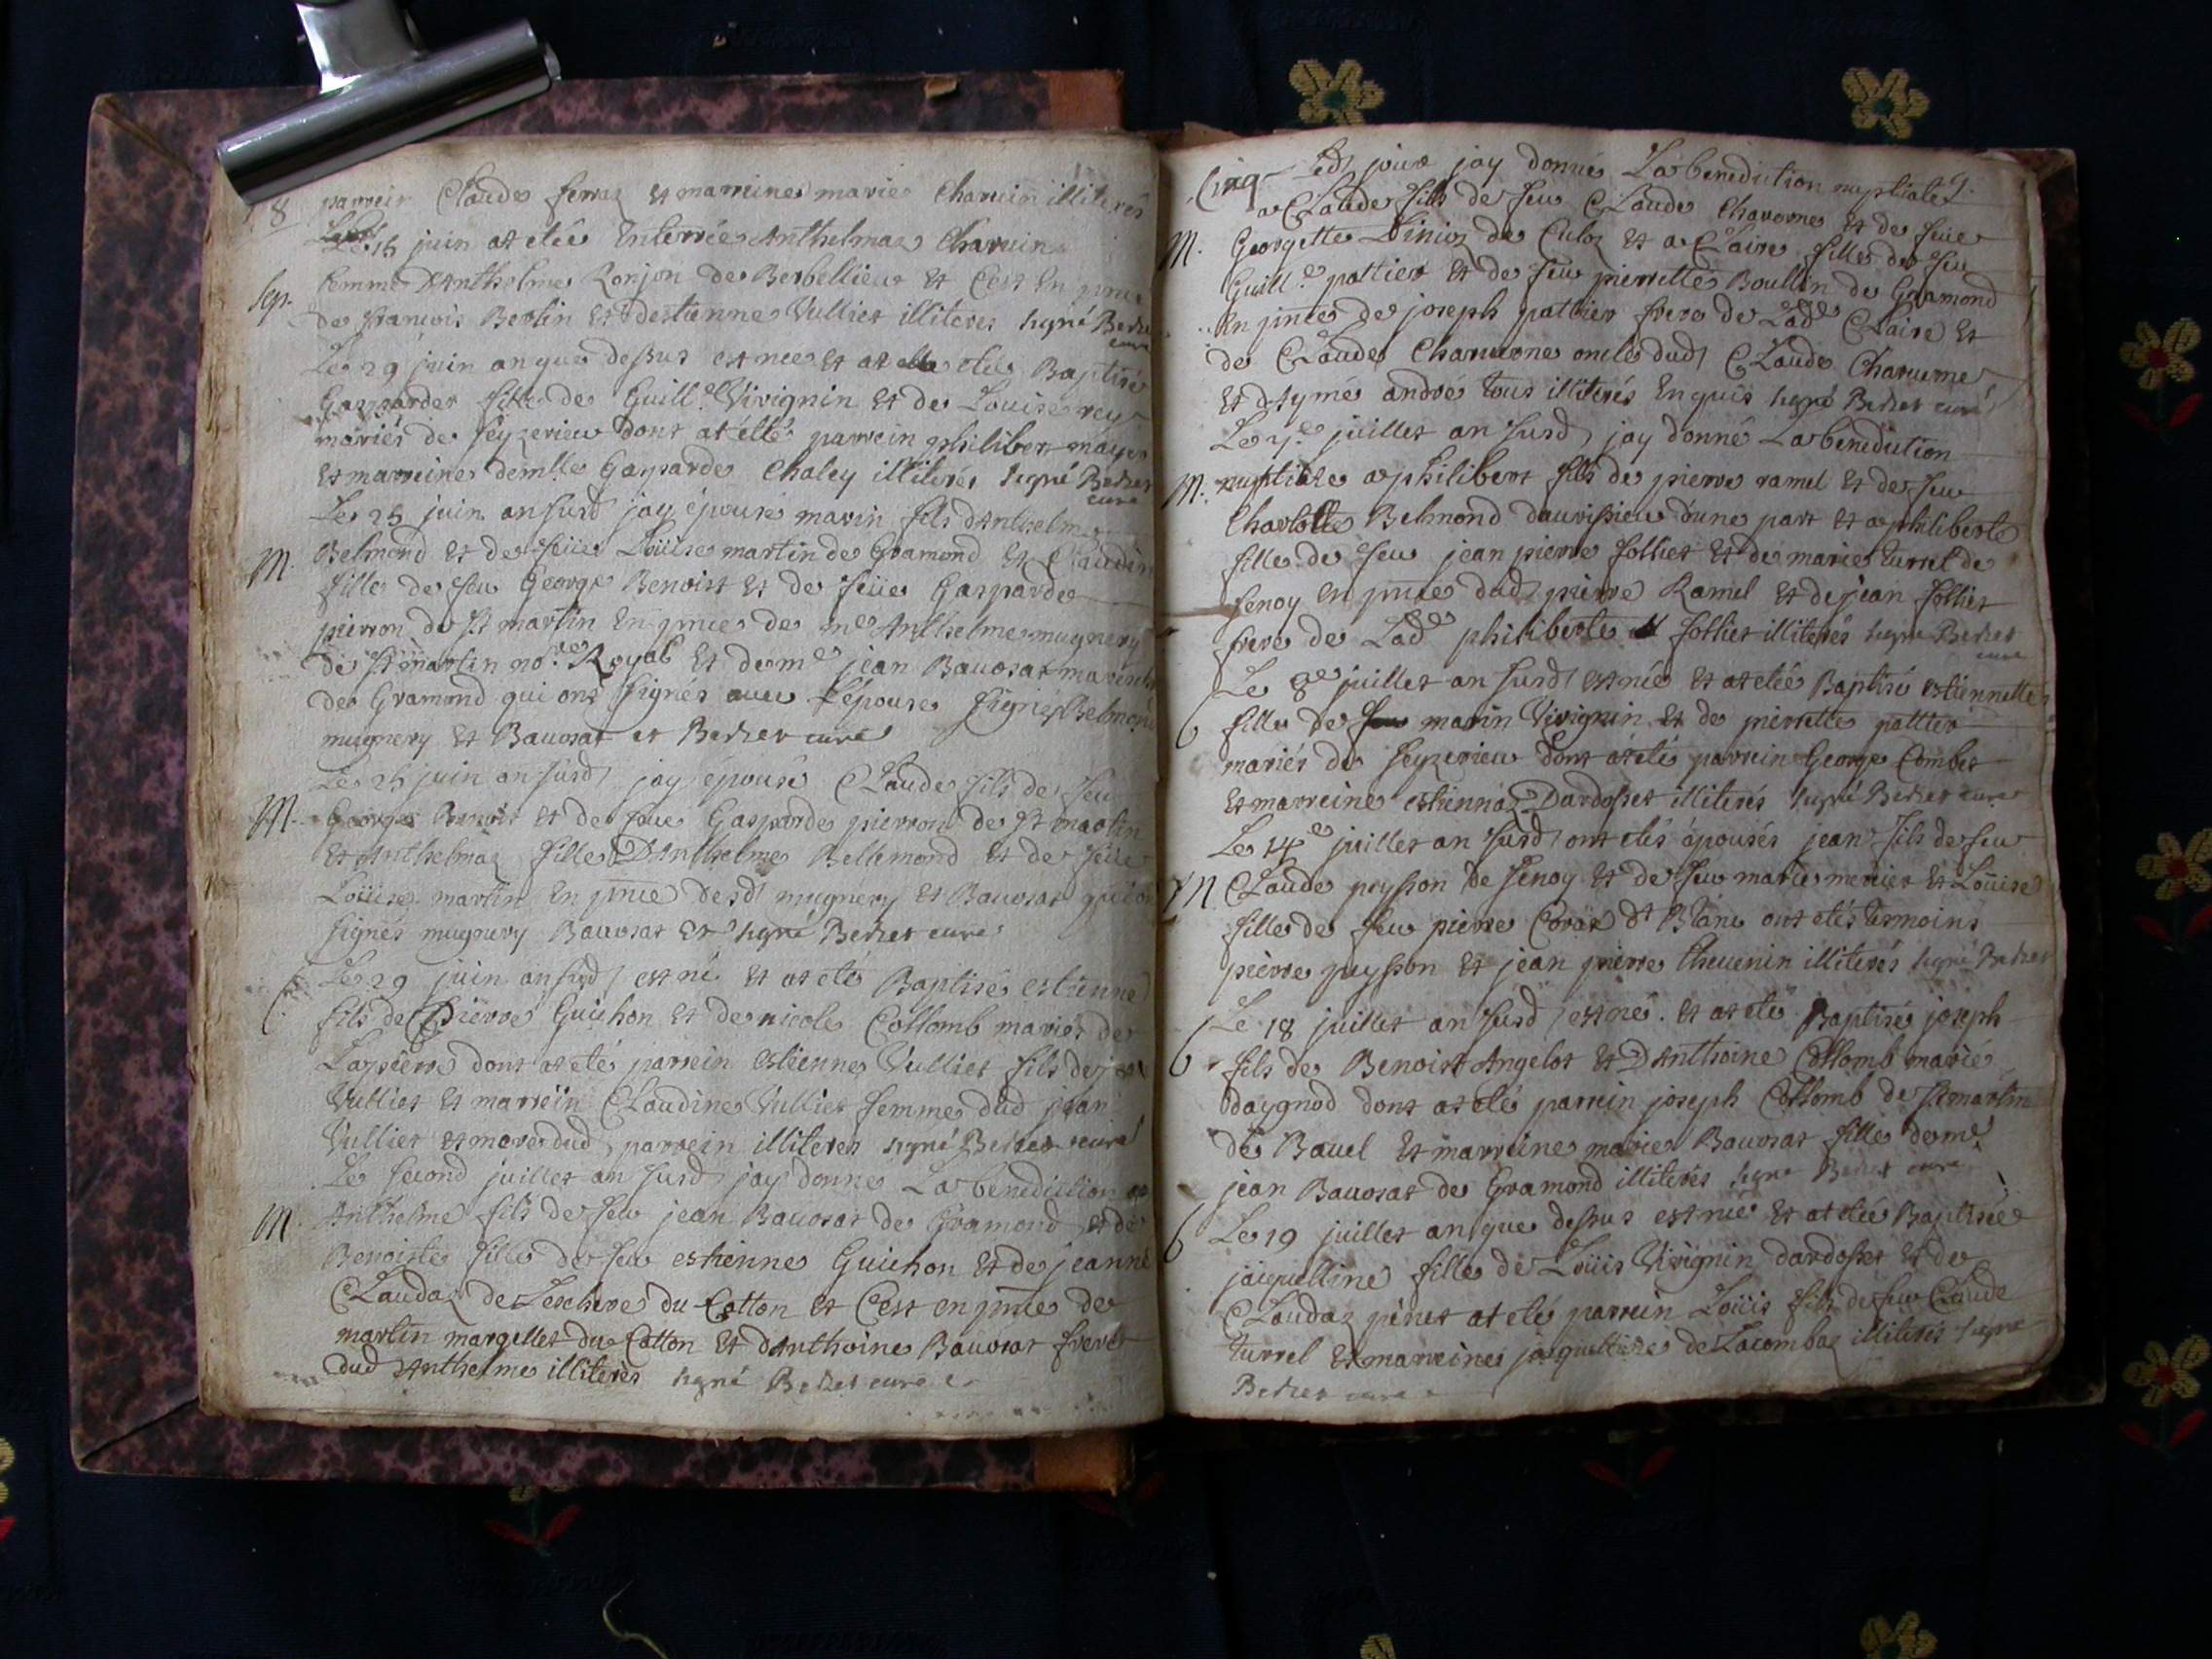 8 parrein Claude ferraz et marreine marie Charvin illiterés
Le 15 juin at etée Enterrée Anthelmaz Charvin
femme D'Anthelme Ronjon de Berbellieu et C'est En pnce
Sep.
de francois Berlin et d'estienne Vulliet illiteres signé
curé
Le 29 juin an que dessus est nee et at etée Baptisée
Gasparde fille de Guill.e Vivignin et de Louise rey
mariés de seyzerieu dont at etté parrein philibert
et marreine demlle Gasparde Chaley illiterés signé
curé
Le 25 juin an susd jay épousé marin fils d'Anthelme
M. Belmond et de feüe Loüise martin de Gramond et
fille de feu George Benoist et de feüe Gasparde
pierron de st martin En pnce de me Anthelme mugnery
de st martin no.re Royal et de me jean Bavosat
de Gramond qui ont signés avec l'épouse signés Belmond
mugnery et Bavosat et curé
Le 25 juin an susd jay épousé Claude fils de feu
M. George Benoist et de feue Gasparde pierron de st martin
et Anthelmaz fille D'Anthelme Bellemond et de feüe
Loüise martin En pnce desd mugnery et Bavosat qui ont
signés mugnery Bavosat et signé curé
Le 29 juin an susd est né et at eté Baptisé estienne
fils de Pierre Guichon et de nicole Collomb mariés de
Lapierre dont at eté parrein estienne Vulliet fils de jean
Vulliet et marrein Claudine Vulliet femme dud jean
Vulliet et mere dud parrein illiteres signé curé
Le second juillet an susd jay donné La benediction a
M Anthelme fils de feu jean Bavosat de Gramond et de
Benoiste fille de feu estienne Guichon et de jeanne
Claudaz de Leschere du Catton et C'est en pnce de
martin margellet du Catton et d'Anthoine Bavosat frere
dud Anthelme illiteres signé curé
Cinq Led jour jay donné La benediction nuptiale 9.
a Claude fils de feu Claude Chavorne et de feüe
M. Georgette Diniez de Culoz et a Claire fille de feu
Guill.e pattier et de feu pierrette Boullin de Gramond
En pnce de joseph pattier frere de Lad.e Claire et
de Claude Charvorne oncle dud Claude
et d'Aymé andré tous illiterés En quis signé curé
Le 7.e juillet an susd jay donné La benediction
M. nuptialle a philibert fils de pierre ramel et de feu
Charlotte Belmond d'avrissieu d'une part et a philiberte
fille de feu jean pierre folliet et de marie turrel de
senoy en pnce dud pierre Ramel et de jean folliet
frere de Lad.e philiberte folliet illiterés signé
curé
Le 8e juillet an susd est née et at etée Baptisé estiennette
6 fille de marin Vivignin et de pierrette pattier
mariés de seyzerieu dont at eté parrein George Combet
et marreine estiennaz Dardosset illiterés signé curé
Le 14e juillet an susd ont etés épousés jean fils de feu
M Claude peysson de senoy et de feu marie mercier et Loüise
fille de feu pierre ont etés tesmoins
pierre peysson et jean pierre thevenin illiterés signé
Le 18 juillet an susd est né et at eté Baptisé joseph
6 fils de Benoist Angelot et D'Anthoine Collomb marié
daygnod dont at eté parrein joseph Collomb de st martin
de Bavel et marreine marie Bavosat fille de me
jean Bavosat de Gramond illiterés signé curé
6 Le 19 juillet an que dessus est née et at etée Baptisée
jacquelline fille de Loüis Vivignin dardosset et de
Claudaz at eté parrein Loüis fils de feu Claude
turrel et marreine jacquelline de Lacombaz illiterés signé
curé